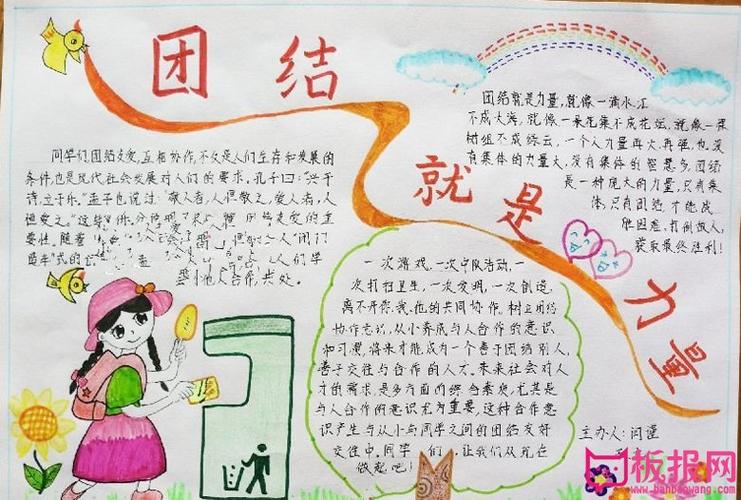 团结
就是
力量
同学们,团结友爱,互相协作,不仅是人们生存和发展的
条件,也是现代社会发展对人们的要求。孔子曰:“兴于
诗,立于乐。”孟子也说过:“敬人者,人恒敬之,爱人者,人
恒爱之。”
要性。随着
人“闭门
人们学
会与他人合作,共处。
团结就是力量,就像一滴水汇
不成大海,就像一朵花集不成花坛,就像一棵
树组不成绿云,一个人力量再大,再强,也没
有集体的力量大,没有集体的智慧多。团结
是一种庞大的力量,只有集
体,只有团结,才能战
胜困难,打倒敌人,
获取最终胜利!
一次游戏,一次中队活动,一
次打扫卫生,一次发明,一次创造,
离不开你、我、他的共同协作。树立团结
协作意识,从小养成与人合作的意识
和习惯,将来才能成为一个善于团结别人,
善于交往与合作的人才。未来社会对人
才的需求,是多方面的综合素质,尤其是
与人合作的意识尤为重要,这种合作意
识产生与从小与同学之间的团结友好
交往中,同学们,让我们从现在
做起吧!
主办人:闫谨
板报网
www.banbaowang.com